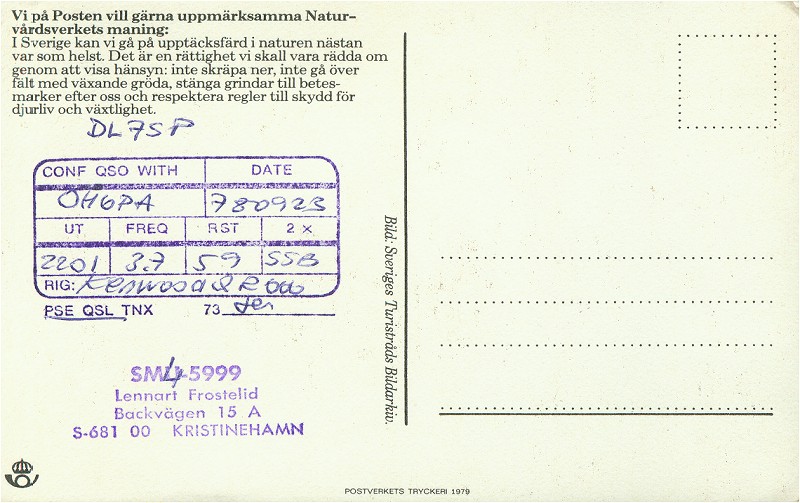 Vi på Posten vill gärna uppmärksamma Natur-
vårdsverkets maning:
I Sverige kan vi gå på upptäcksfärd i naturen nästan
var som helst. Det är en rättighet vi skall vara rädda om
genom att visa hänsyn: inte skräpa ner, inte gå över
fält med växande gröda, stänga grindar till betes-
marker efter oss och respektera regler till skydd för
djurliv och växtlighet.
DL7SP
CONF QSO WITH DATE
OH6PA 780923
UT FREQ RST 2 x
2201 3.7 59 SSB
RIG: Kenwood
PSE QSL TNX 73
SM4-5999
Lennart Frostelid
Backvägen 15 A
S-681 00 KRISTINEHAMN
Bild: Sveriges Turistråds Bildarkiv.
POSTVERKETS TRYCKERI 1979